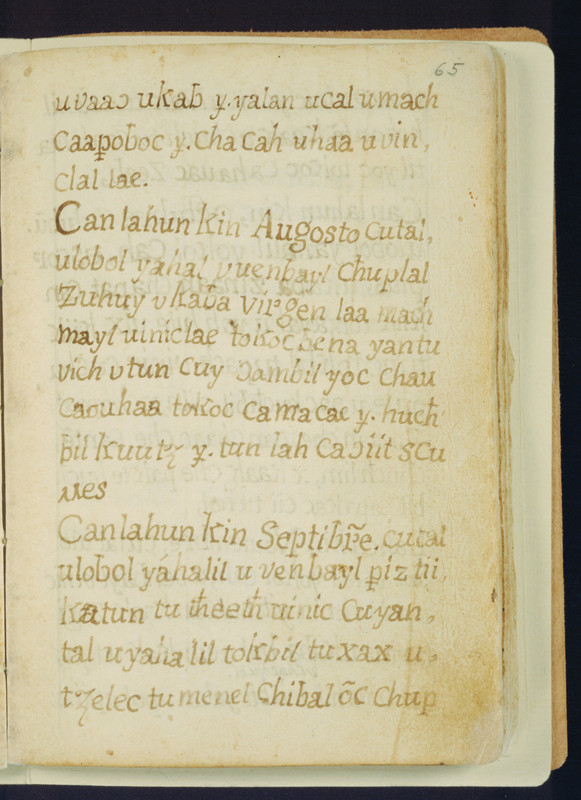 65
uvaaɔ ukab y. yalan ucal umach
Caapoboc y. Cha Cah uhaa uvin,
clal lae.
Can lahun kin Augosto Cutal,
ulobol yahal uuenbayl Chuplal
Zuhuy ukaba Virgen laa mach
mayl uiniclae tokoc bena yantu
vich utun Cuy ɔambil yoc Chau
Caouhaa tokoc Camacac y. huch
bil kuutz y. tun lah Caɔiit SCu
Mes
Can lahun kin Septibre. Cutal
ulobol yahalil u venbayl piz tii,
katun tu theeth uinic Cuyan,
tal uyahalil tokbil tuxax u,
tzelec tu menel Chibal õc Chup